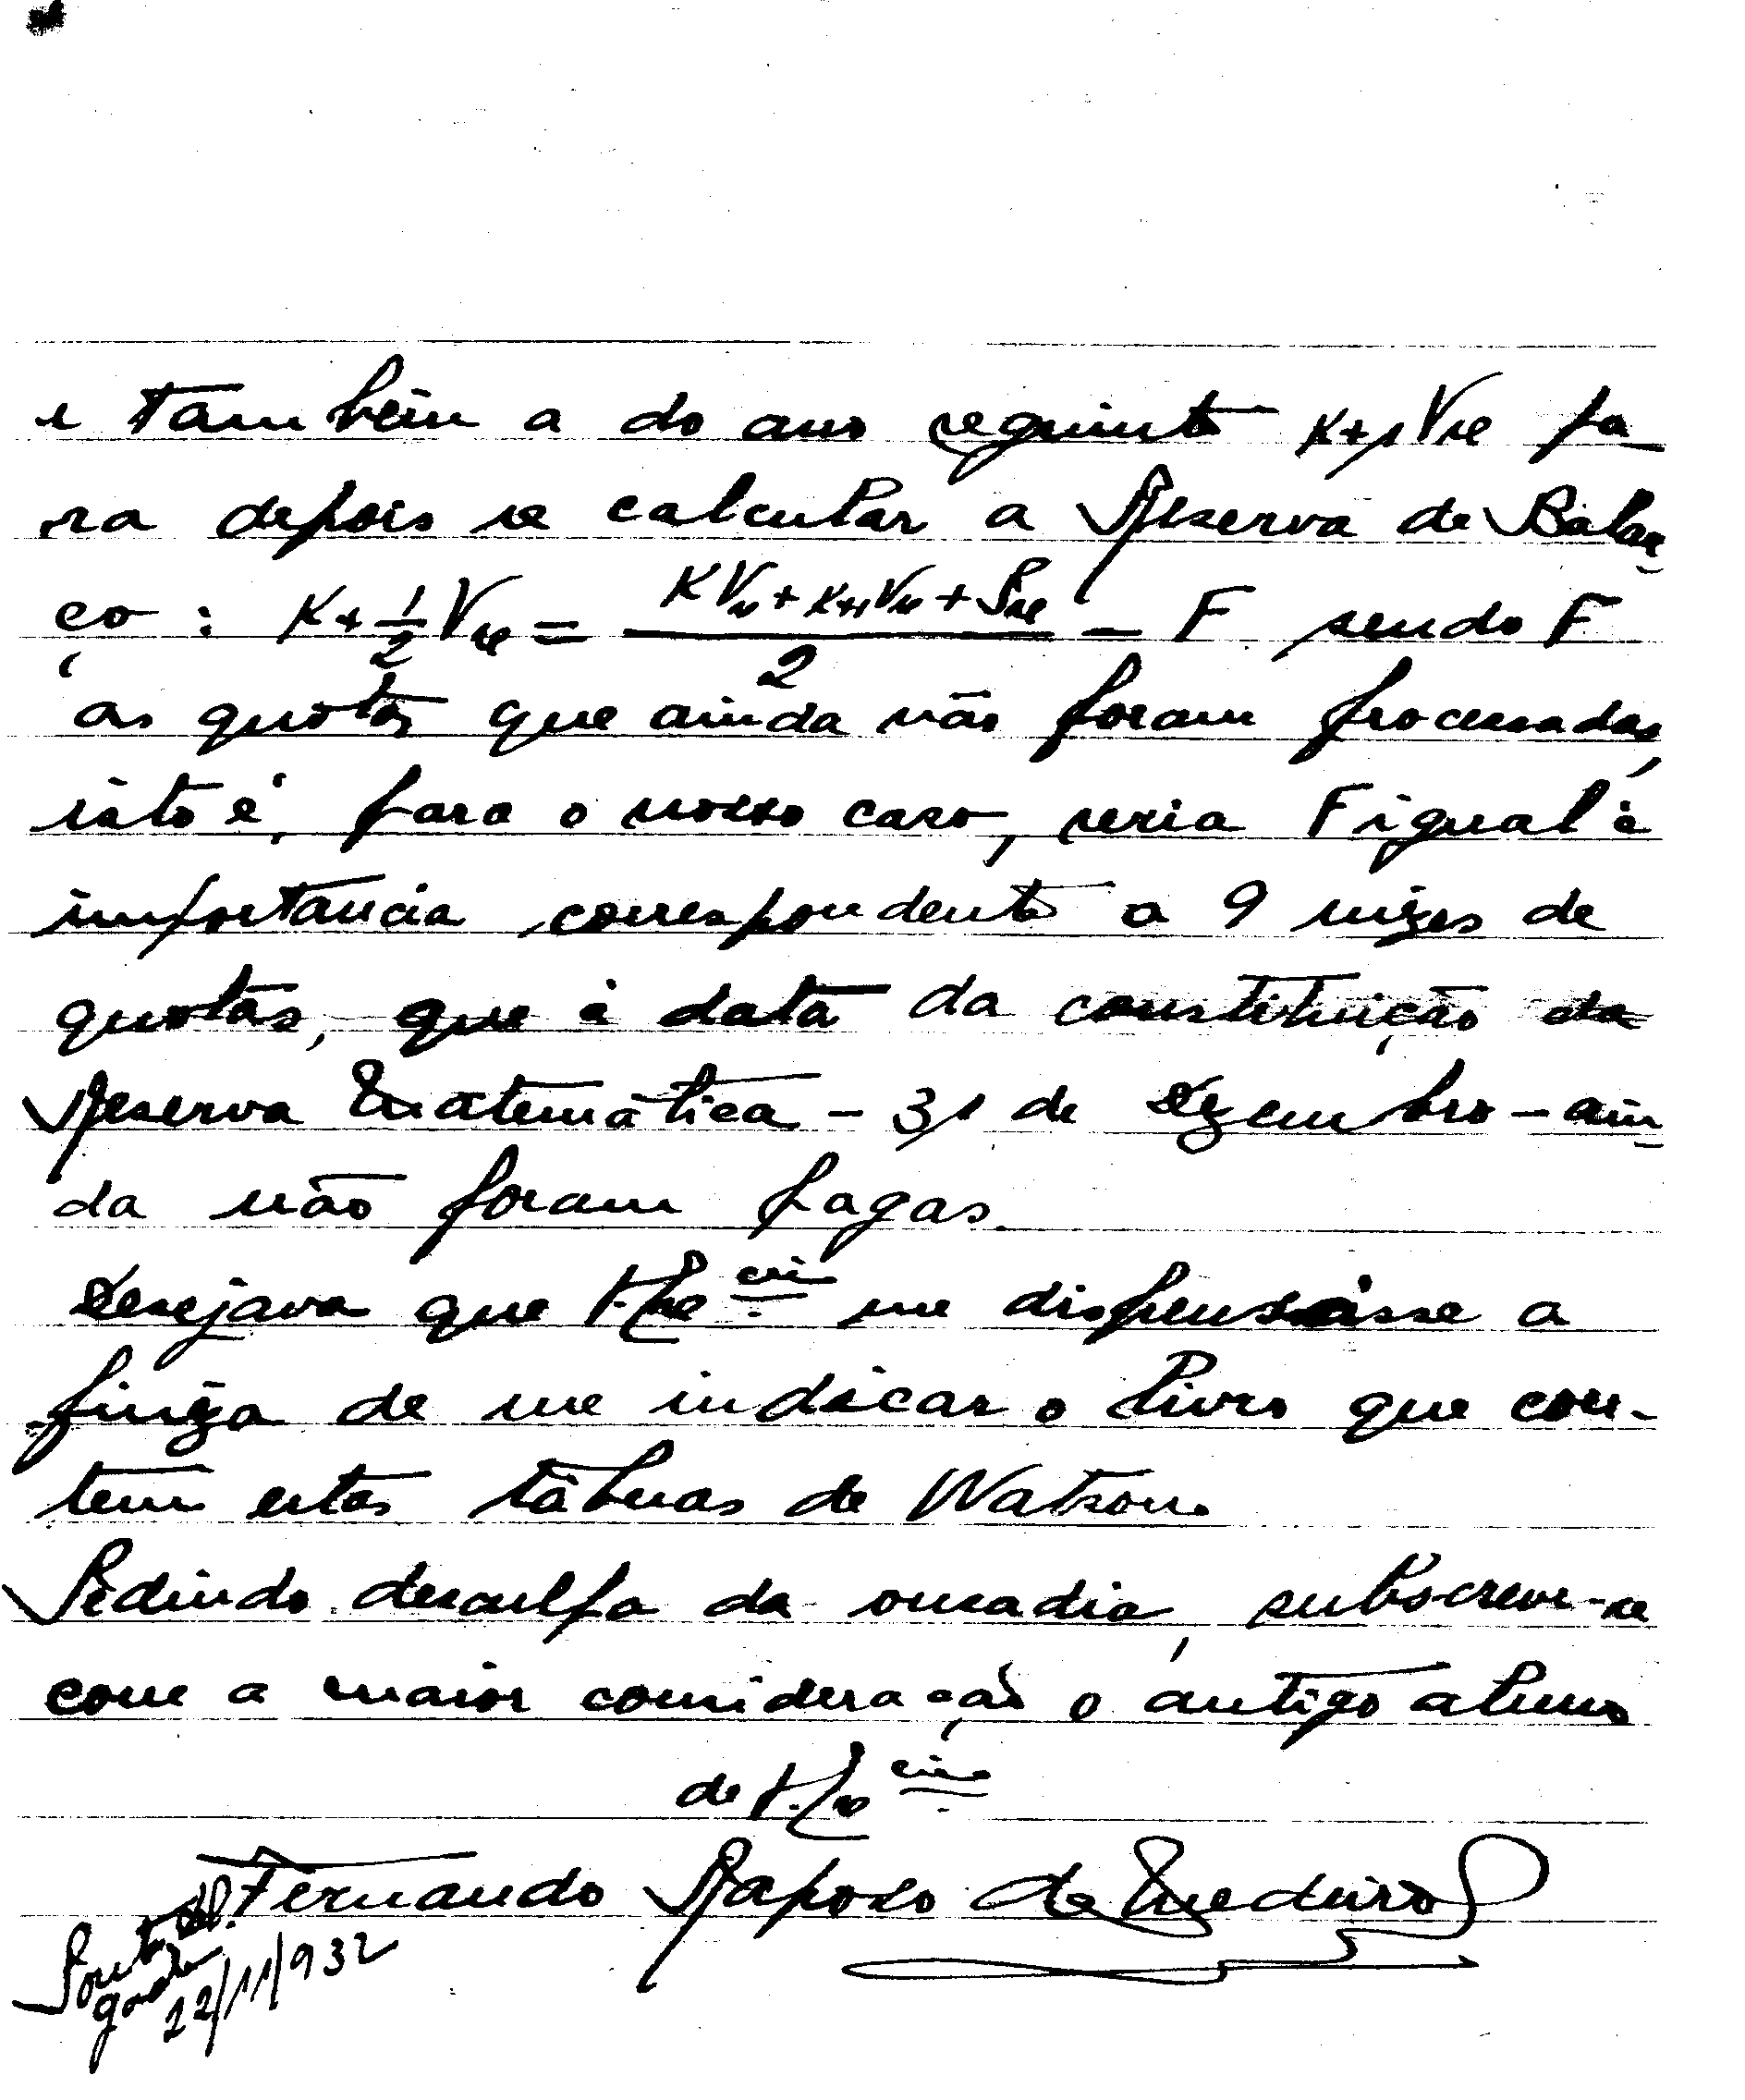 e também a do ano seguinte K+1Vx pa-
ra depois se calcular a Reserva de Balan-
ço : K+½Vx = (KVx + K+1Vx + Px)/2 - F sendo F
as quotas que ainda não foram processadas,
isto é, para o nosso caso, seria F igual à
importancia correspondente a 9 mêzes de
quotas, que à data da constituição da
Reserva Matemática - 31 de Dezembro - ain-
da não foram pagas.
Desejava que V. Ex.cia me dispensásse a
finêza de me indicar o livro que con-
tem estas tábuas de Watson.
Pedindo desculpa da ousadia, subscreve-se
com a maior consideração o antigo aluno
de V. Ex.cia
Fernando Raposo de Medeiros
Ponta Del-
gada
22/11/932